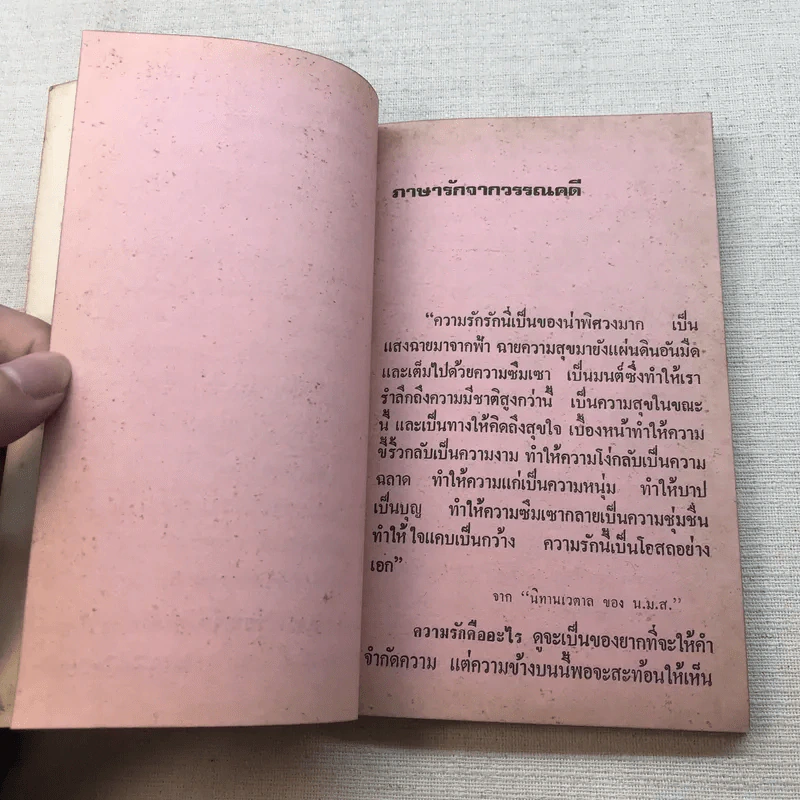 ภาษารักจากวรรณคดี
“ความรักรักนี่เป็นของน่าพิศวงมาก เป็น
แสงฉายมาจากฟ้า ฉายความสุขมายังแผ่นดินอันมืด
และเต็มไปด้วยความซึมเซา เป็นมนต์ซึ่งทำให้เรา
รำลึกถึงความมีชาติสูงกว่านี้ เป็นความสุขในขณะ
นี้ และเป็นทางให้คิดถึงสุขใจ เบื้องหน้าทำให้ความ
ขี้ริ้วกลับเป็นความงาม ทำให้ความโง่กลับเป็นความ
ฉลาด ทำให้ความแก่เป็นความหนุ่ม ทำให้บาป
เป็นบุญ ทำให้ความซึมเซากลายเป็นความชุ่มชื่น
ทำให้ใจแคบเป็นกว้าง ความรักนี้เป็นโอสถอย่าง
เอก”
จาก “นิทานเวตาล ของ น.ม.ส.”
ความรักคืออะไร ดูจะเป็นของยากที่จะให้คำ
จำกัดความ แต่ความข้างบนนี้พอจะสะท้อนให้เห็น